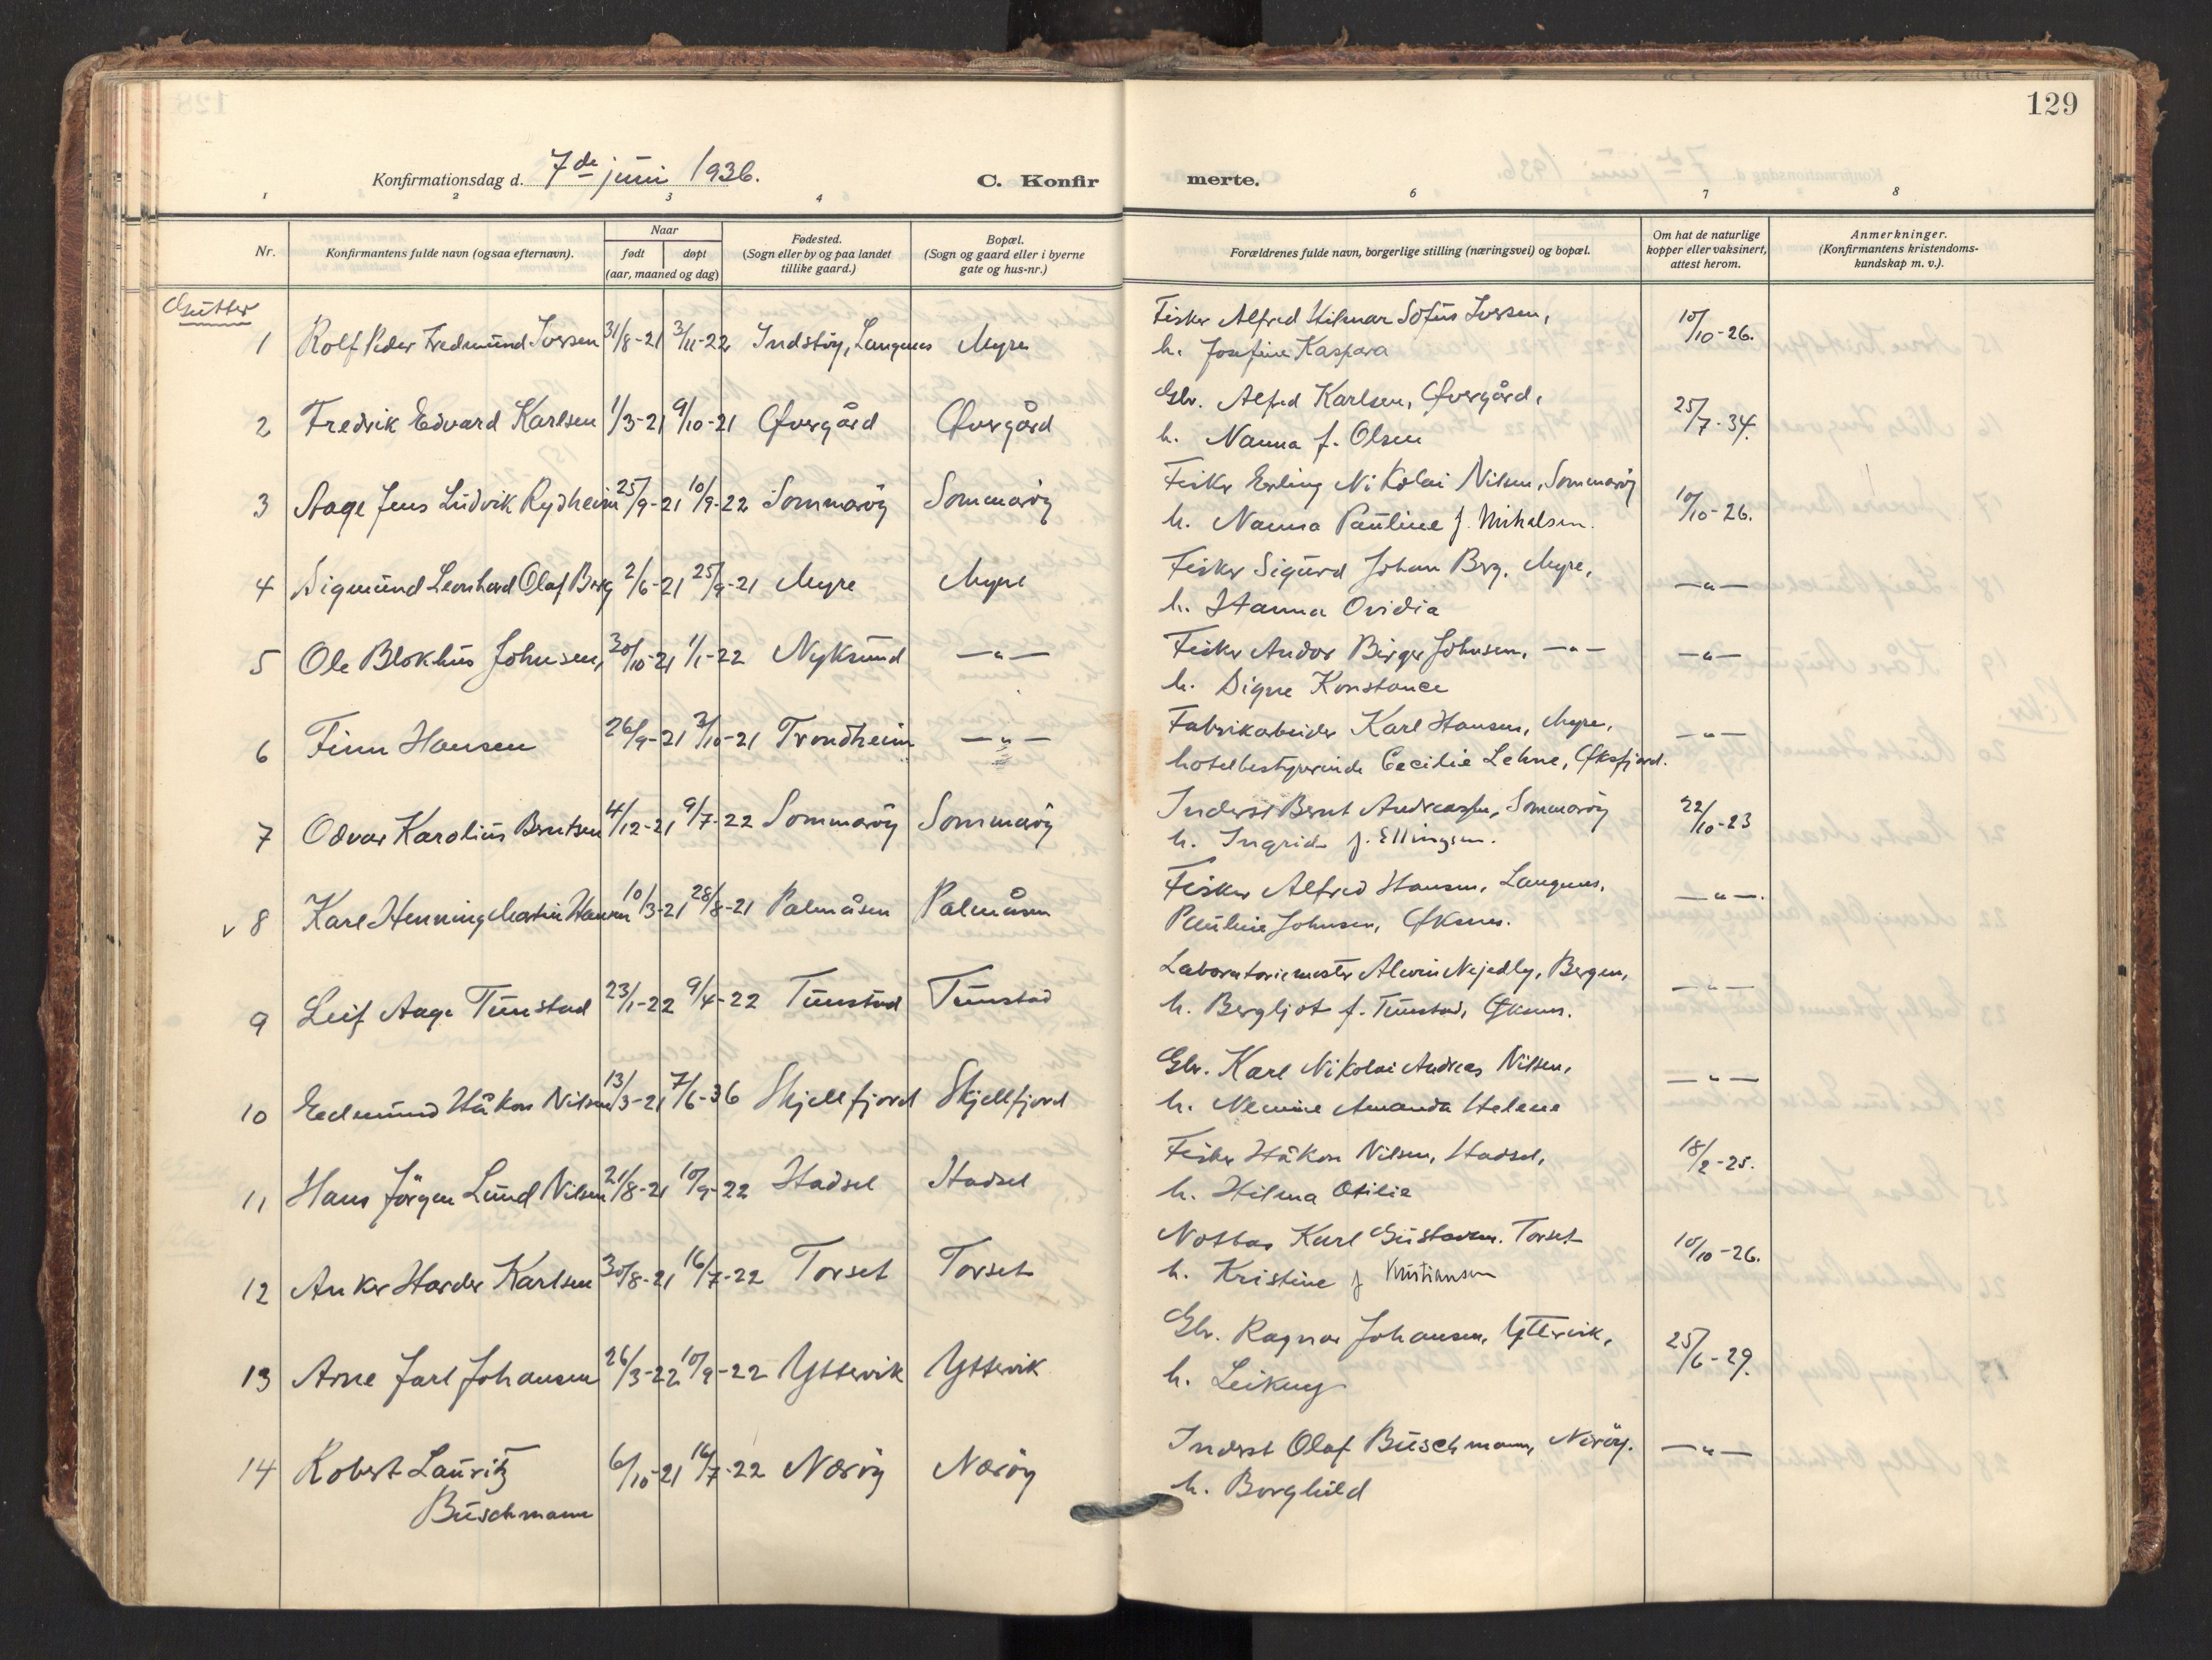 129
Konfirmationsdag d. 7de juni 1936.
C. Konfirmerte.
1 2 3 4 6 7 8
Nr.
Konfirmantens fulde navn (ogsaa efternavn).
Naar
født døpt
(aar, maaned og dag)
Fødested.
(Sogn eller by og paa landet
tillike gaard.)
Bopæl.
(Sogn og gaard eller i byerne
gate og hus-nr.)
Forældrenes fulde navn, borgerlige stilling (næringsvei) og bopæl.
Om hat de naturlige
kopper eller vaksinert,
attest herom.
Anmerkninger.
(Konfirmantens kristendoms-
kundskap m. v.).
Gutter
1 Rolf Peder Fredmund Iversen 31/8-21 3/11-22 Indstöy, Langenes Myre
Fisker Alfred Hilmar Sofus Iversen, 10/10-26.
h. Josefine Kaspara
2 Fredrik Edvard Karlsen 1/3-21 9/10-21 Øvergård Øvergård
Gbr. Alfred Karlsen, Øvergård, 25/7-34.
h. Nanna f. Olsen
3 Aage Jens Ludvik Rydheim 25/9-21 10/9-22 Sommaröy Sommaröy
Fisker Erling Nikolai Nilsen, Sommaröy 10/10-26.
h. Nanna Pauline f. Mikalsen.
4 Sigmund Leonhard Olaf Berg 2/6-21 25/9-21 Myre Myre
Fisker Sigurd Johan Berg, Myre, —"—
h. Hanna Ovidia
5 Ole Blokhus Johnsen, 30/10-21 1/1-22 Nyksund —"—
Fisker Andor Birger Johnsen, —"— —"—
h. Signe Konstance
6 Finn Hansen 26/9-21 3/10-21 Trondheim —"—
Fabrikarbeider Karl Hansen, Myre, —"—
hotelbestyrerinde Cecilie Lehne, Øksfjord.
7 Odvar Karolius Berntsen 4/12-21 9/7-22 Sommaröy Sommaröy
Inderst Bernt Andreassen, Sommaröy 22/10-23
h. Ingrid f. Ellingsen.
v 8 Karl Henning Martin Hansen 10/3-21 28/8-21 Palmåsen Palmåsen
Fisker Alfred Hansen, Langenes, —"—.
Pauline Johnsen, Øksnes.
9 Leif Aage Tunstad 23/1-22 9/4-22 Tunstad Tunstad
Laboratoriemester Alwin Nejedly, Bergen, —"—
h. Bergljot f. Tunstad, Øksnes.
10 Edmund Håkon Nilsen 13/3-21 7/6-36 Skjellfjord Skjellfjord
Gbr. Karl Nikolai Andreas Nilsen, —"—
h. Nemine Amanda Helene
11 Hans Jörgen Lund Nilsen 21/8-21 10/9-22 Hadsel Hadsel
Fisker Håkon Nilsen, Hadsel, 18/2-25.
h. Hilma Otilie
12 Anker Harder Karlsen 30/8-21 16/7-22 Torset Torset
Notbas Karl Gustavsen. Torset 10/10-26.
h. Kristine f Kristiansen
13 Arne Jarl Johansen 26/3-22 10/9-22 Yttervik Yttervik
Gbr. Ragnar Johansen, Yttervik, 25/6-29.
h. Leikny
14 Robert Lauritz 6/10-21 16/7-22 Næröy Næröy
Buschmann
Inderst Olaf Buschmann, Næröy. —"—
h. Borghild